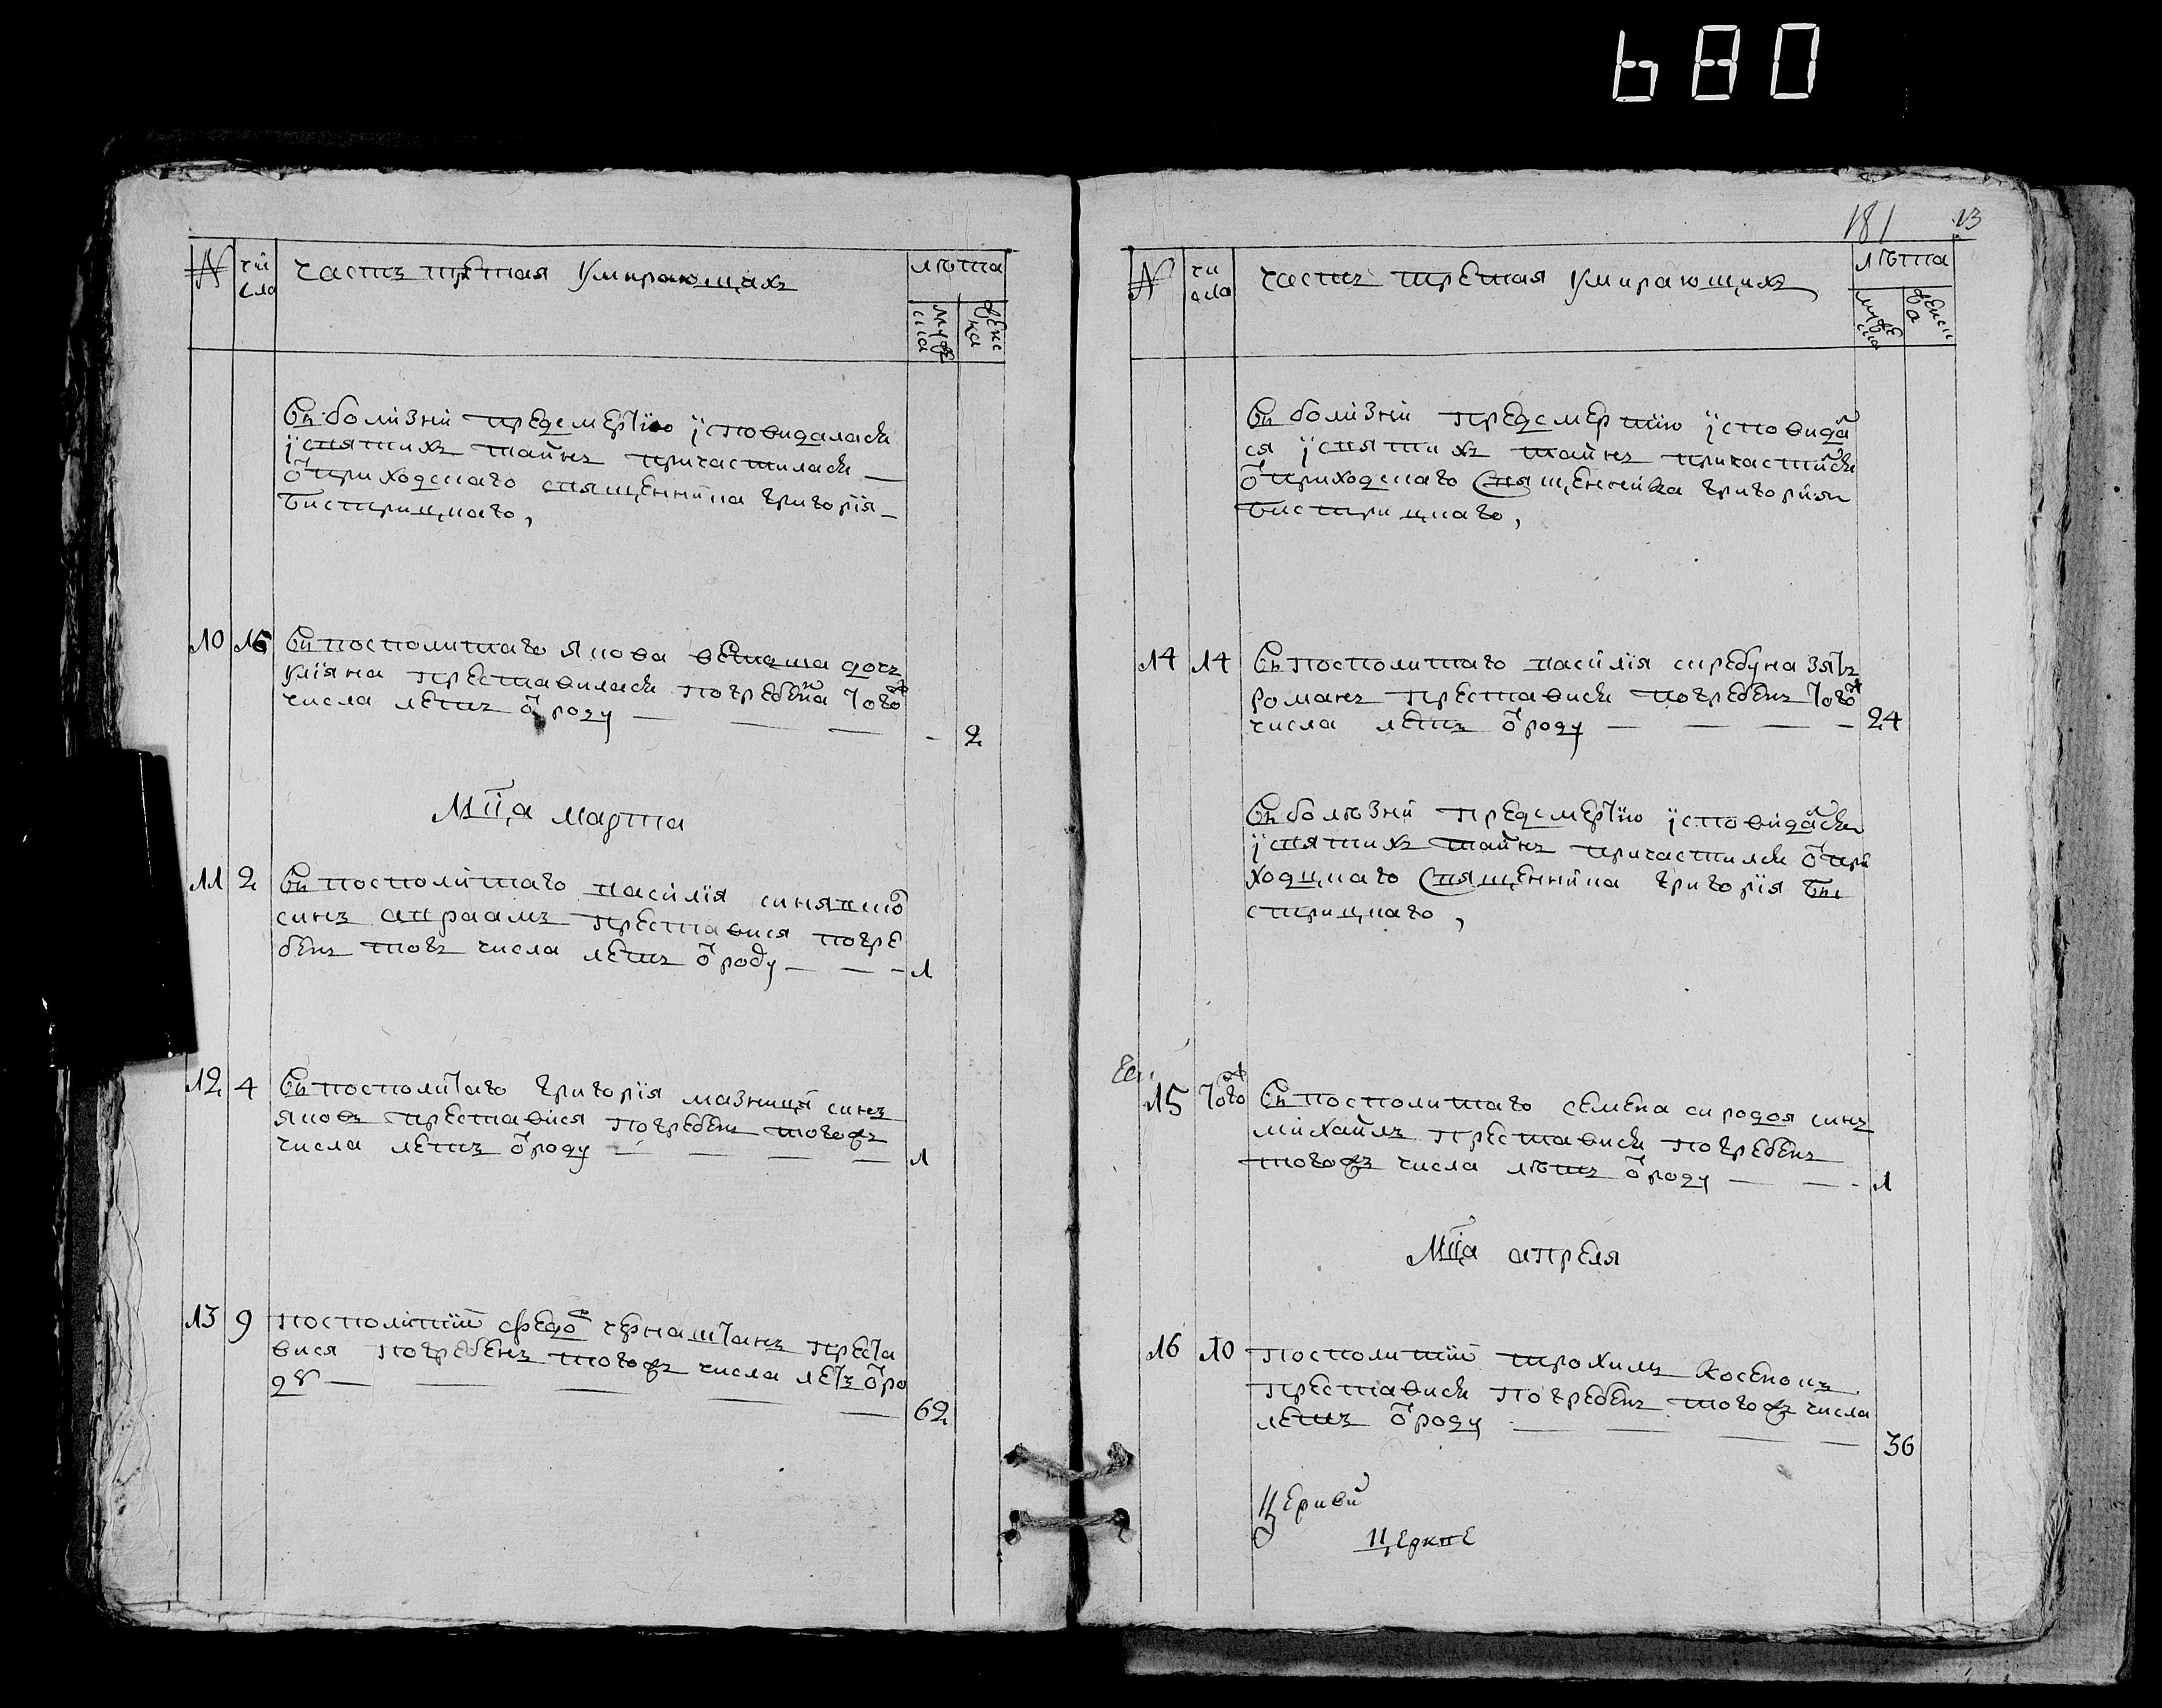 680
N чи сла часть третая Умирающихъ лѣта
мужеска женска
Въ болѣзнѣ предсмертію ісповидалась
і святихъ тайнъ причастилась
ѿ приходскаго священніка григорія
Бистрицкаго,
10 16 Въ посполитаго якова дочь
уліяна преставилась погребенна того ж
числа летъ ѿ роду — — — - 2
Мца марта
11 2 Въ посполітаго василія
синъ авраамъ преставися погре
бенъ тогъ числа летъ ѿ роду — — - 1
12 4 Въ посполітаго григорія мазниці синъ
яковъ преставися погребенъ тогожъ
числа летъ ѿ роду — — — — 1
13 9 посполітій федоръ чернаштанъ преста
вися погребенъ тогожъ числа летъ ѿ ро
ду — — — — — 62
181 13
N чи сла часть третая Умирающихъ лѣта
мужеска женска
Въ болізній предсмертію ісповидал
ся і святихъ тайнъ причастился
ѿ приходскаго священніка григорія
Бистрицкаго,
14 14 Въ посполитаго василія зять
романъ преставись погребенъ того ж
числа летъ ѿ роду — — — — 24
Въ болѣзній предсмертію ісповідался
і святихъ тайнъ причастился ѿ при
ходцкаго священніка григорія Би
стрицкаго,
15 того ж Въ посполитаго семена сиродоя синъ
михайлъ преставись погребенъ
тогожъ числа лѣтъ ѿ роду — — - 1
Мца апреля
16 10 Посполитій трохимъ косенокъ
преставись погребенъ тогожъ числа
летъ ѿ роду — — — — 36
церкве